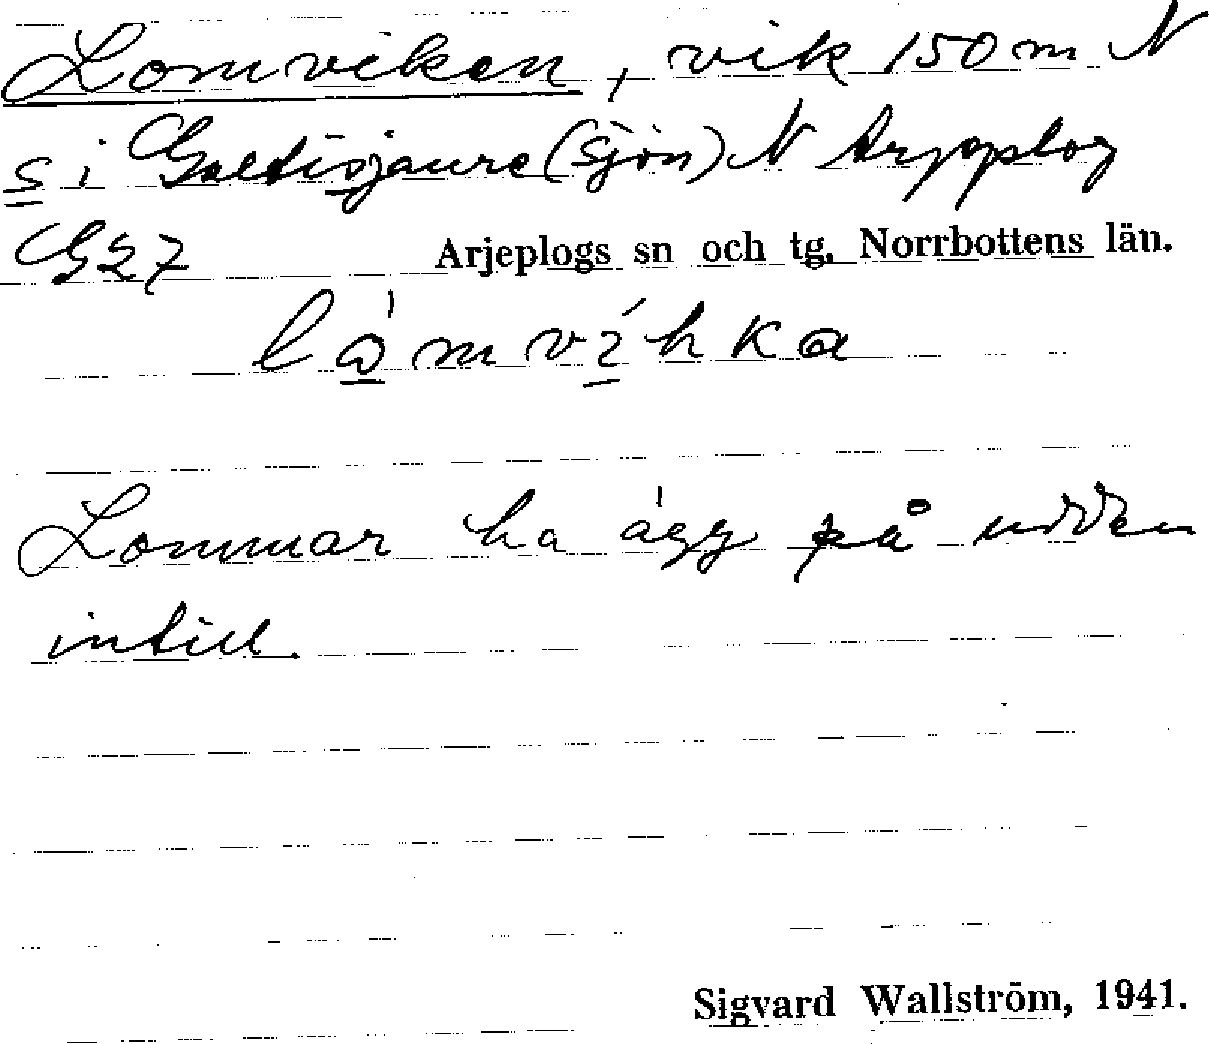 Lomviken, vik 150 m N
s i Galtisjaure (Sjön) N Arjeplog
G27 Arjeplogs sn och tg. Norrbottens län.
lå̀mvíhka
Lommar ha ägg på udden
intill.
Sigvard Wallström, 1941.